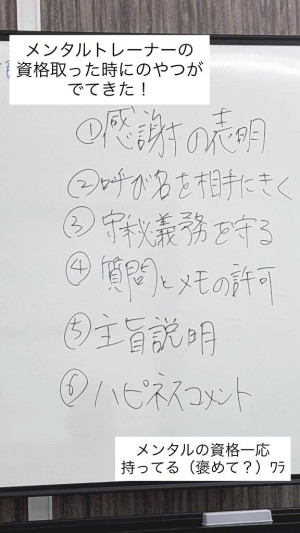 メンタルトレーナーの
資格取った時にのやつが
でてきた！
①感謝の表明
②呼び名を相手にきく
③守秘義務を守る
④質問とメモの許可
⑤主旨説明
⑥ハピネスコメント
メンタルの資格一応
持ってる（褒めて？）ﾜﾗ